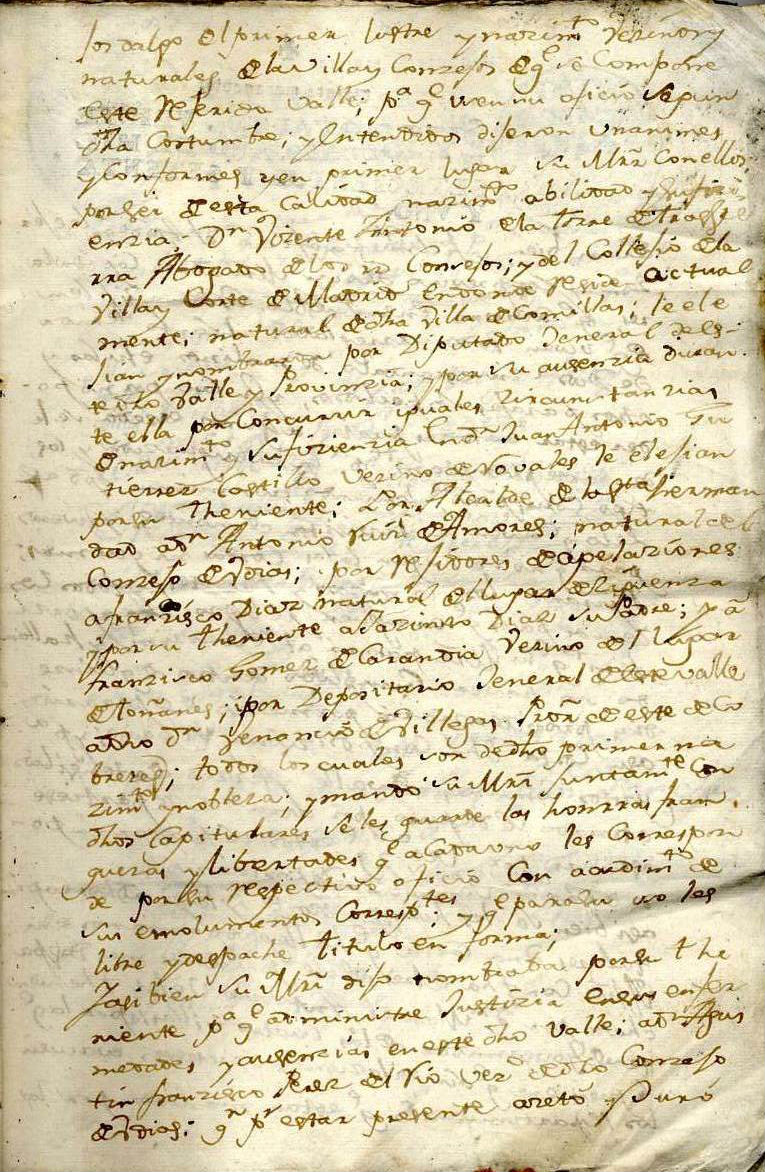 josdalgo del primer lustre y nazimto vezinos y
naturales de la Villa y Conzejos de qe se Compone
este referido Valle; pa qe usen su oficio segun
dha Costumbre; y Entendidos dijeron unanimes
y Conformes y en primer lugar su Mrd Con ellos,
por ser de esta Calidad nazimto abilidad y sufizi
enzia. Dn Vizente Antonio de la torre de trasie
rra Abogado de los Rs Consejos; y del Collejio de la
Villa y Corte de Madrid en donde reside actual
mente; natural de dha Villa de Comillas; le ele
jian y nombraron por Diputado Jeneral de es
te dho Valle y Provinzia; y por su ausenzia duran
te ella por Concurrir iguales zircunstanzias
de nazimto y sufizienzia en dn Juan Antonio Gu
tierrez Costillo Vezino de Novales le elejian
por su theniente; Por Alcalde de la Sta Herman
dad a dn Antonio Ruiz de Amores; natural del
Conzejo de Udias; por rejidores de apelaziones
a franzisco Diaz natural del lugar de Ziguenza
y por su theniente a Jazinto Diaz su Padre; y a
franzisco Gomez de Carandia Vezino del lugar
de toñanes; y por Depositario Jeneral de este Valle
a dho dn Venancio de Villegas Pror de este de Co
breces; todos los cuales son de dho primer na
zimto y nobleza; y mando su Mrd juntamte con
dhos Capitulares se les guarde las honrras fran
quezas y libertades qe a Cada uno les Correspon
de por su respectivo oficio Con acudimto de
sus emolumentos Correspotes; y qe para su uso les
libre y despache titulo en forma;
Jasi bien su Mrd dijo nombraba por su the
niente pa qe administre Justizia en sus enfer
medades y ausencias en este dho Valle; a dn Agus
tin franzisco Perez del Rio Vezo de dho Conzejo
de Udias; qn pr estar presente azeto y Juró